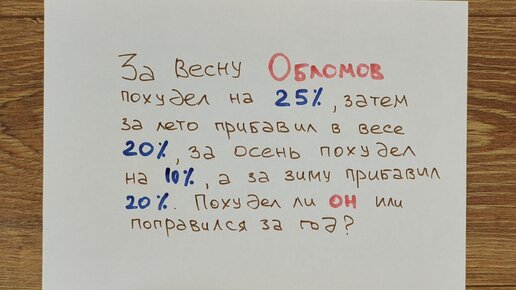 За весну Обломов
похудел на 25%, затем
за лето прибавил в весе
20%, за осень похудел
на 10%, а за зиму прибавил
20%. Похудел ли он или
поправился за год?